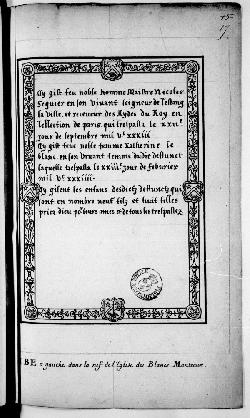 Cy gist feu noble homme Maistre Nicolas
Seguier en son vivant seigneur de lestang
la ville, et receveur des Aydes du Roy en
l'ellection de paris, qui trespassa le xxix.e
jour de septembre mil V.c xxxiii
Cy gist feu noble femme Katherine le
blanc en son vivant femme dudict deffunct
laquelle trespassa le xxiiii.e jour de febvrier
mil V.c xxxiiii.
Cy gisent les enfans desdictz deffunctz qui
sont en nombre neuf filz et huit filles
priez dieu pour leurs ames et de tous les trespassez
a gauche dans la nef de l'Eglise des Blancs Manteaux.